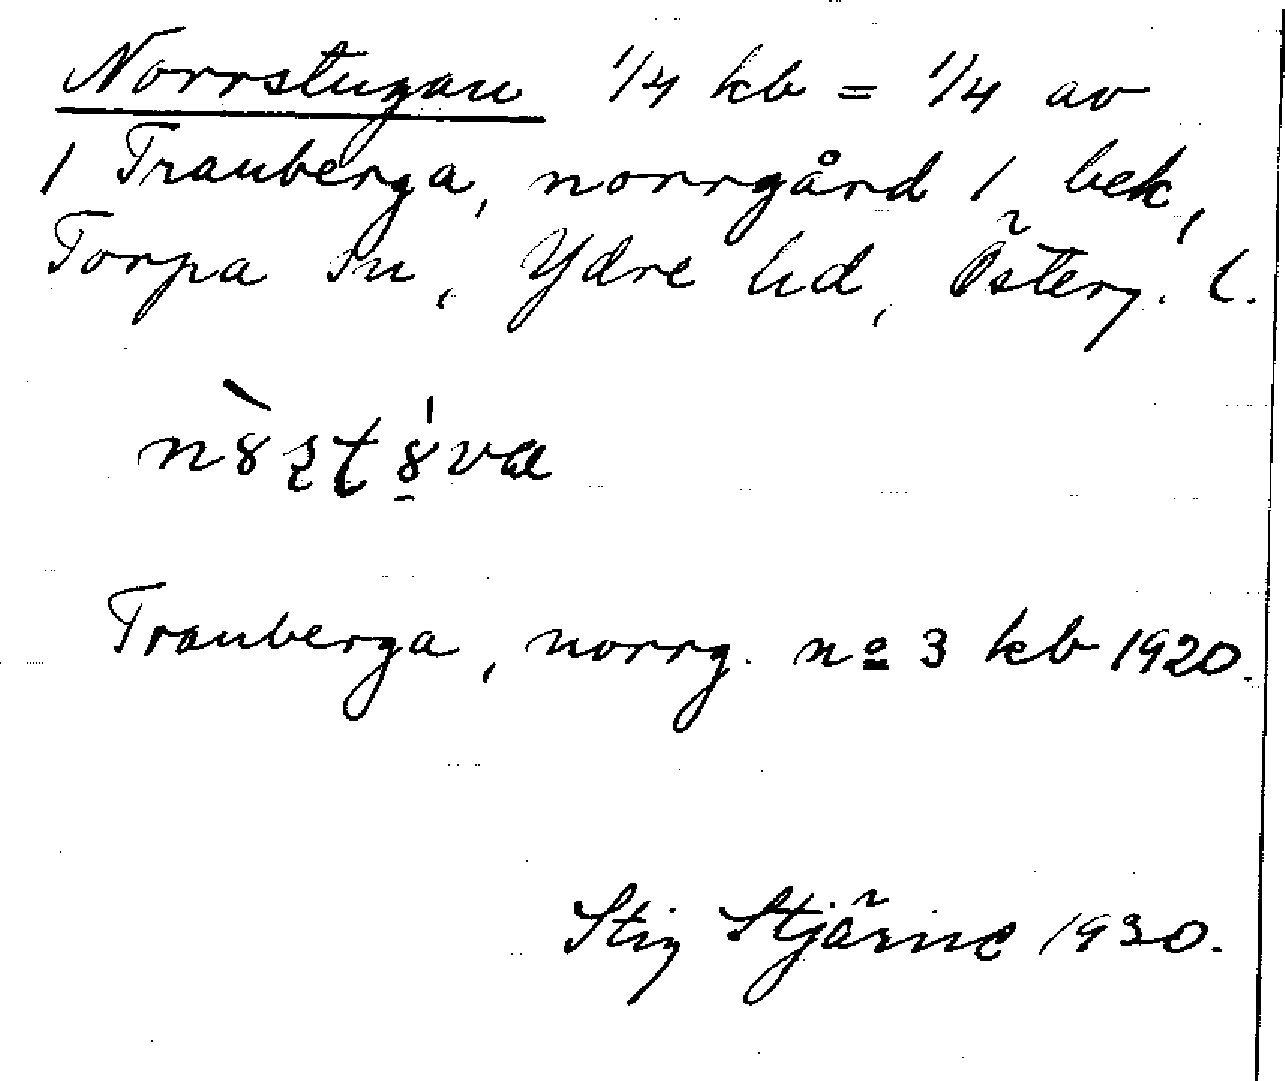 Norrstugan 1/4 kb = 1/4 av
1 Tranberga, norrgård 1 bek,
Torpa sn, Ydre hd, Österg. l.
Tranberga, norrg. nº 3 kb 1920.
Stig Stjärne 1930.